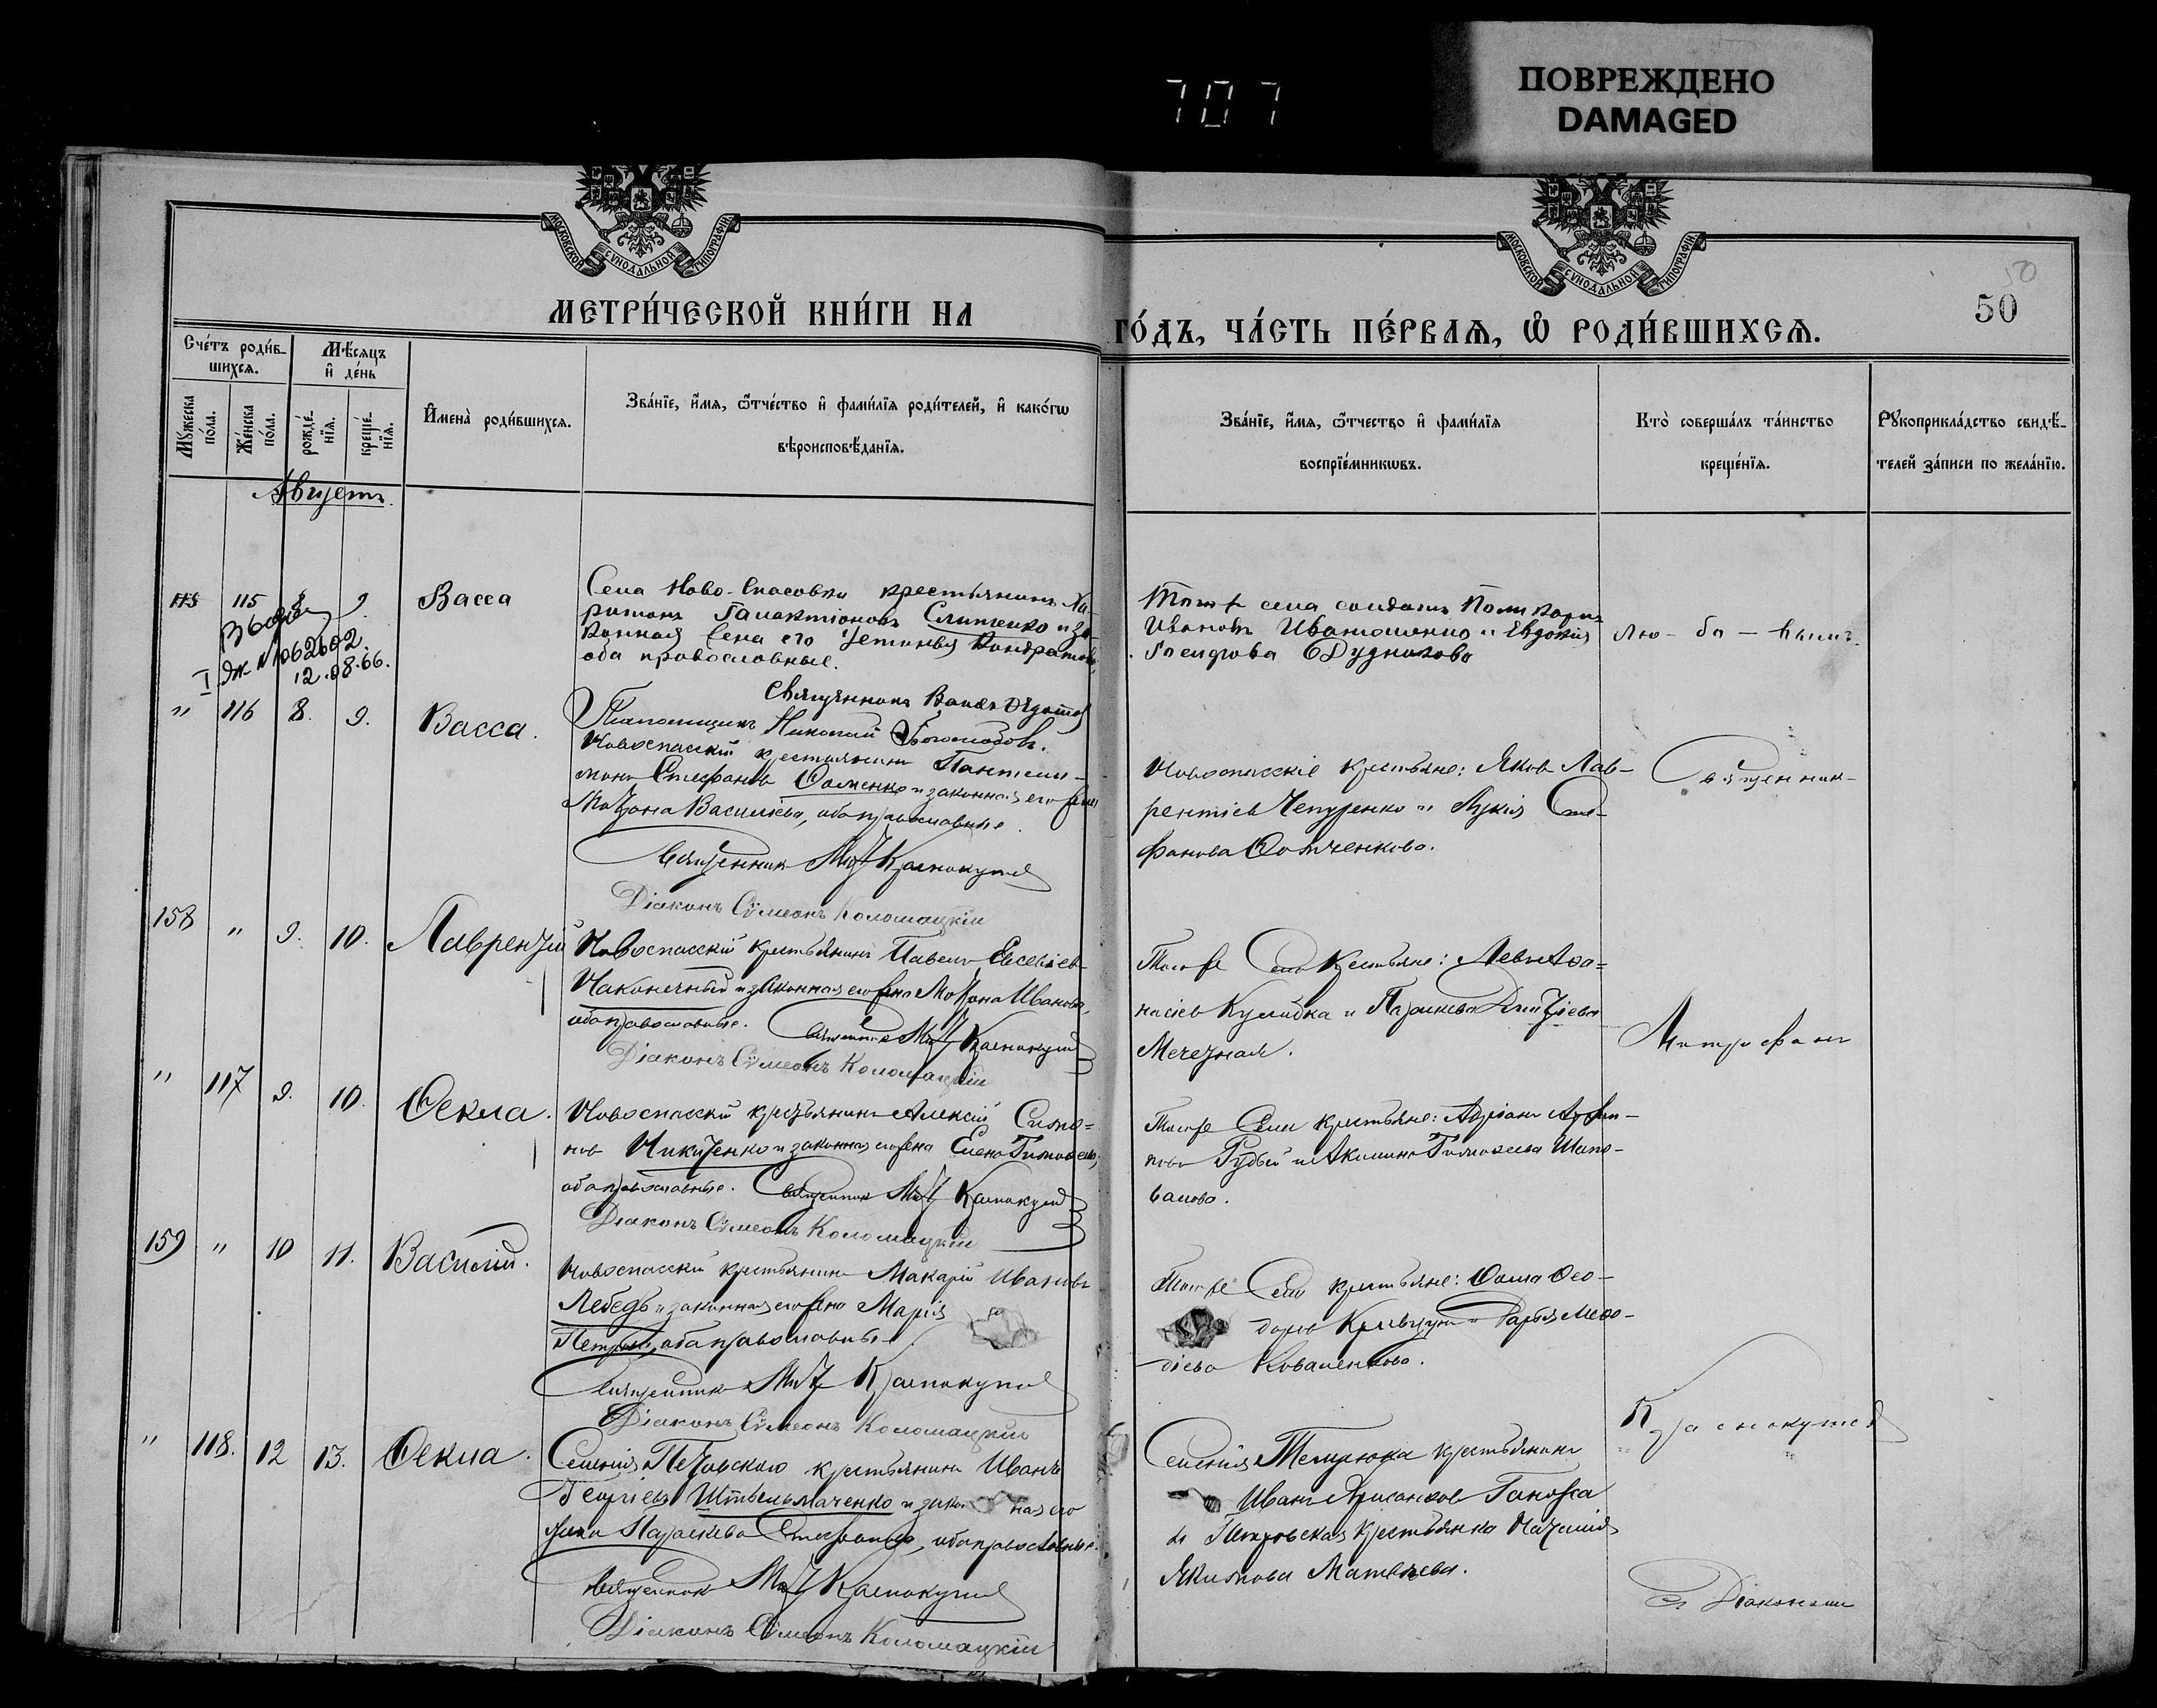 707
ПОВРЕЖДЕНО
DAMAGED
МОСКОВСКОЙ СѴНОДАЛЬНОЙ ТИПОГРАФІИ
МОСКОВСКОЙ СѴНОДАЛЬНОЙ ТИПОГРАФІИ
50
50
МЕТРИ́ЧЕСКОЙ КНИ́ГИ НА
ГО́ДЪ, ЧА́СТЬ ПЕ́РВАѦ, Ѡ РОДИ́ВШИХСѦ.
Сче́тъ роди́в-
шихсѧ.
Мѣ́сѧцъ
и де́нь
Мꙋ́жеска
по́ла.
Же́нска
по́ла.
рожде́-
нїѧ.
креще́-
нїѧ.
Имена̀ роди́вшихсѧ.
Зва́нїе, и́мѧ, ѻ́тчество и фами́лїѧ роди́телей, и како́гѡ
вѣроисповѣ́данїѧ.
Зва́нїе, и́мѧ, ѻ́тчество и фами́лїѧ
воспрїе́мникѡвъ.
Кто̀ соверша́лъ та́инство
креще́нїѧ.
Рꙋкоприкла́дство свидѣ́-
телей за́писи по жела́нїю.
Августъ.
115 115 8 9. Васса
Села Ново-Спасовки крестьянинъ Ха-
ритонъ Галактіоновъ Слипченко и за-
конная жена его Устинья Кондратова,
оба православные.
Священникъ
Псаломщикъ Николай Боголюбовъ.
Тогоже села солдатъ Поликарпъ
Ивановъ Иваношенко и Евдокия
Дудникова
12.08.66.
" 116 8. 9. Васса.
Новоспасскій крестьянинъ Пантелей-
монъ Стефановъ Фоменко и законная его жена
Матрона Васильева, оба православные.
Священникъ Мит. Краснокутскій
Діаконъ Сѵмеонъ Коломацкій
Новоспасскіе крестьяне: Яковъ Лав-
рентіевъ Чепуренко и Лукія Сте-
фанова Фомченкова.
Священник-
158 " 9. 10. Лаврентій
Новоспасскій крестьянинъ Павелъ Евсевіевъ
Наконечный и законная его жена Матрона Иванова,
оба православные. Священникъ Мит. Краснокутскій
Діаконъ Сѵмеонъ Коломацкій
Тогоже Села Крестьяне: Левъ Афа-
насіевъ Кулибка и Параскева Дмитріева
Мечетная.
Митрофанъ
" 117 9. 10. Ѳекла.
Новоспасскій крестьянинъ Алексій Симо-
новъ Никитенко и законная его жена Елена Тимофеева,
оба православные. Священникъ Мит. Краснокутскій
Діаконъ Сѵмеонъ Коломацкій
Тогоже Села крестьяне: Адріанъ
Рудый и Акилина Тимофеева Шапо-
валова.
159 " 10 11. Василій.
Новоспасскій крестьянинъ Макарій Ивановъ
Лебедь и законная его жена Марія
Петрова, оба православные.
Священникъ Мит. Краснокутскій
Діаконъ Сѵмеонъ Коломацкій
Тогоже Села крестьяне: Ѳома Ѳео-
доровъ и Дарья Меѳо-
діева Коваленкова.
Краснокутскій
" 118. 12 13. Ѳекла.
Селенія Петровского крестьянинъ Иванъ
Георгіевъ Штельмаченко и законная его
жена Параскева Стефанова, оба православные.
Священникъ Мит. Краснокутскій
Діаконъ Сѵмеонъ Коломацкій
Селенія Темрюка крестьянинъ
Иванъ Ганожа
и Петровская крестьянка Наталія
Якимова Матвеева.
съ Діакономъ